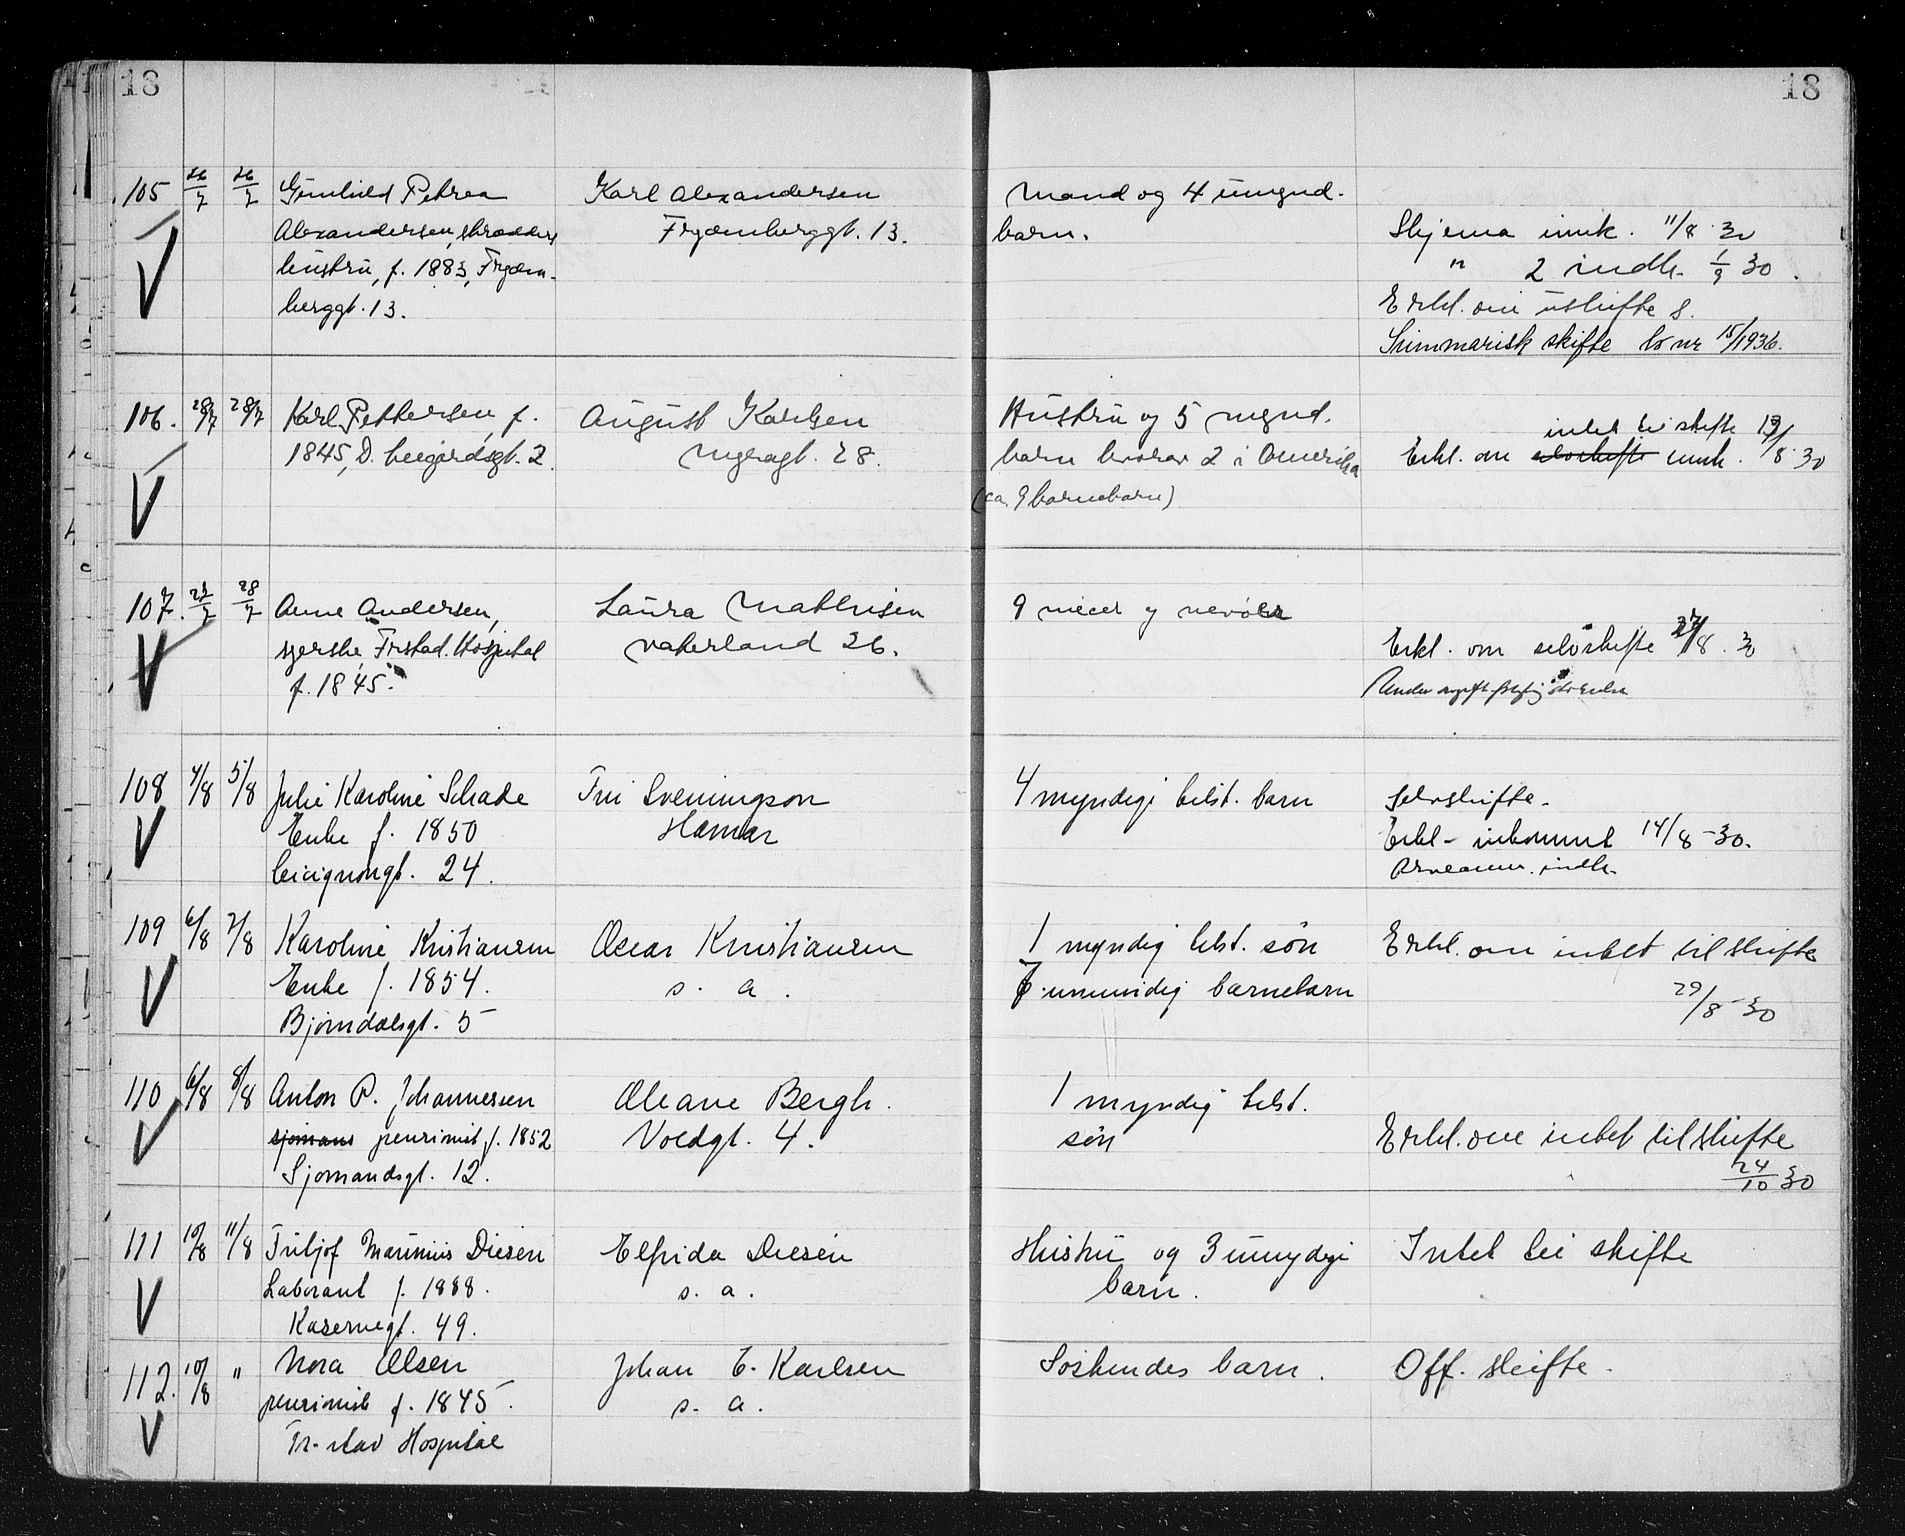 18
18
105 26/7 26/7 Gunhild Petrea
Alexandersen, skrædder
hustru, f. 1883,
berggt. 13.
Karl Alexandersen
13.
Mand og 4 umynd.
barn.
Skjema innk. 11/8 30
" 2 indk. 1/9 30.
Erkl. om uskifte s.
Summarisk skifte bo nr 15/1936.
106. 28/7 28/7 Karl Pettersen, f.
1845, 2.
August Karlsen
28.
Hustru og 5 mynd.
barn hvorav 2 i Amerika
(ca. 9 barnebarn)
intet til skifte 13/8 30
Erkl. om selvskifte innk.
107. 28/7 Anne Andersen,
syerske, Frstad. Hospital
f. 1845.
Laura Mathisen
Vaterland 26.
9 niecer og nevøer
Erkl. om selvskifte 27/8. 30
108 4/8 5/8 Julie Karoline Schade
Enke f. 1850
Cicignongt. 24.
Fru Sveningson
Hamar
4 myndige tilst. barn
Selvskifte.
Erkl. inkommet 14/8-30.
indk.
109 6/8 7/8 Karoline Kristiansen
Enke f. 1854.
Bjørndalsgt. 5
Oscar Kristiansen
s. a.
1 myndig tilst. søn
umundig barnebarn
Erkl. om intet til skifte
29/8-30
110 6/8 8/8 Anton P. Johannesen
sjømans pensionist f. 1852
Sjømandsgt. 12.
Oleane Bergh.
Voldgt. 4.
1 myndig tilst.
søn
Erkl. om intet til skifte
24/10 30
111 10/8 11/8 Fritjof Marinius Diesen
Laborant f. 1888.
Kasernegt. 49.
Elfrida Diesen
s. a.
Hustru og 3 umydige
barn.
Intet til skifte
112. 10/8 " Nora Olsen
pensionist f. 1845.
Fr.stad Hospital
Johan E. Karlsen
s. a.
Søskendes barn.
Off. skifte.